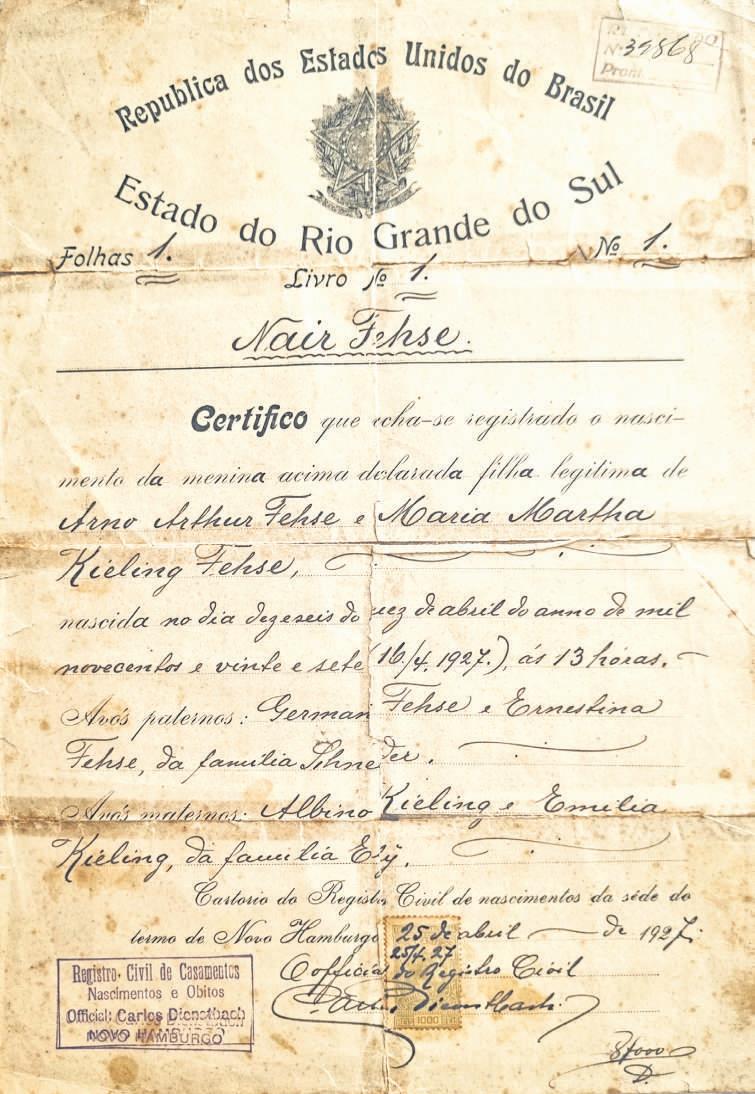 Nº 39868
Republica dos Estados Unidos do Brasil
Estado do Rio Grande do Sul
Folhas 1.
Nº 1.
Livro Nº 1.
Nair Fehse.
Certifico que acha-se registrado o nasci-
mento da menina acima declarada filha legitima de
Arno Arthur Fehse e Maria Martha
Kieling Fehse,
nascida no dia dezeseis do mez de abril do anno de mil
novecentos e vinte e sete (16/4. 1927.), ás 13 horas.
Avós paternos: German Fehse e Ernestina
Fehse, da familia Schneider.
Avós maternos: Albino Kieling e Emilia
Kieling, da familia Ely.
Cartorio do Registro Civil de nascimentos da séde do
termo de Novo Hamburgo 25 de abril de 1927.
25/4. 27
O official do Registro Civil
Carlos Dienstbach.
1000
Registro Civil de Casamentos
Nascimentos e Obitos
Official: Carlos Dienstbach
NOVO HAMBURGO
D.